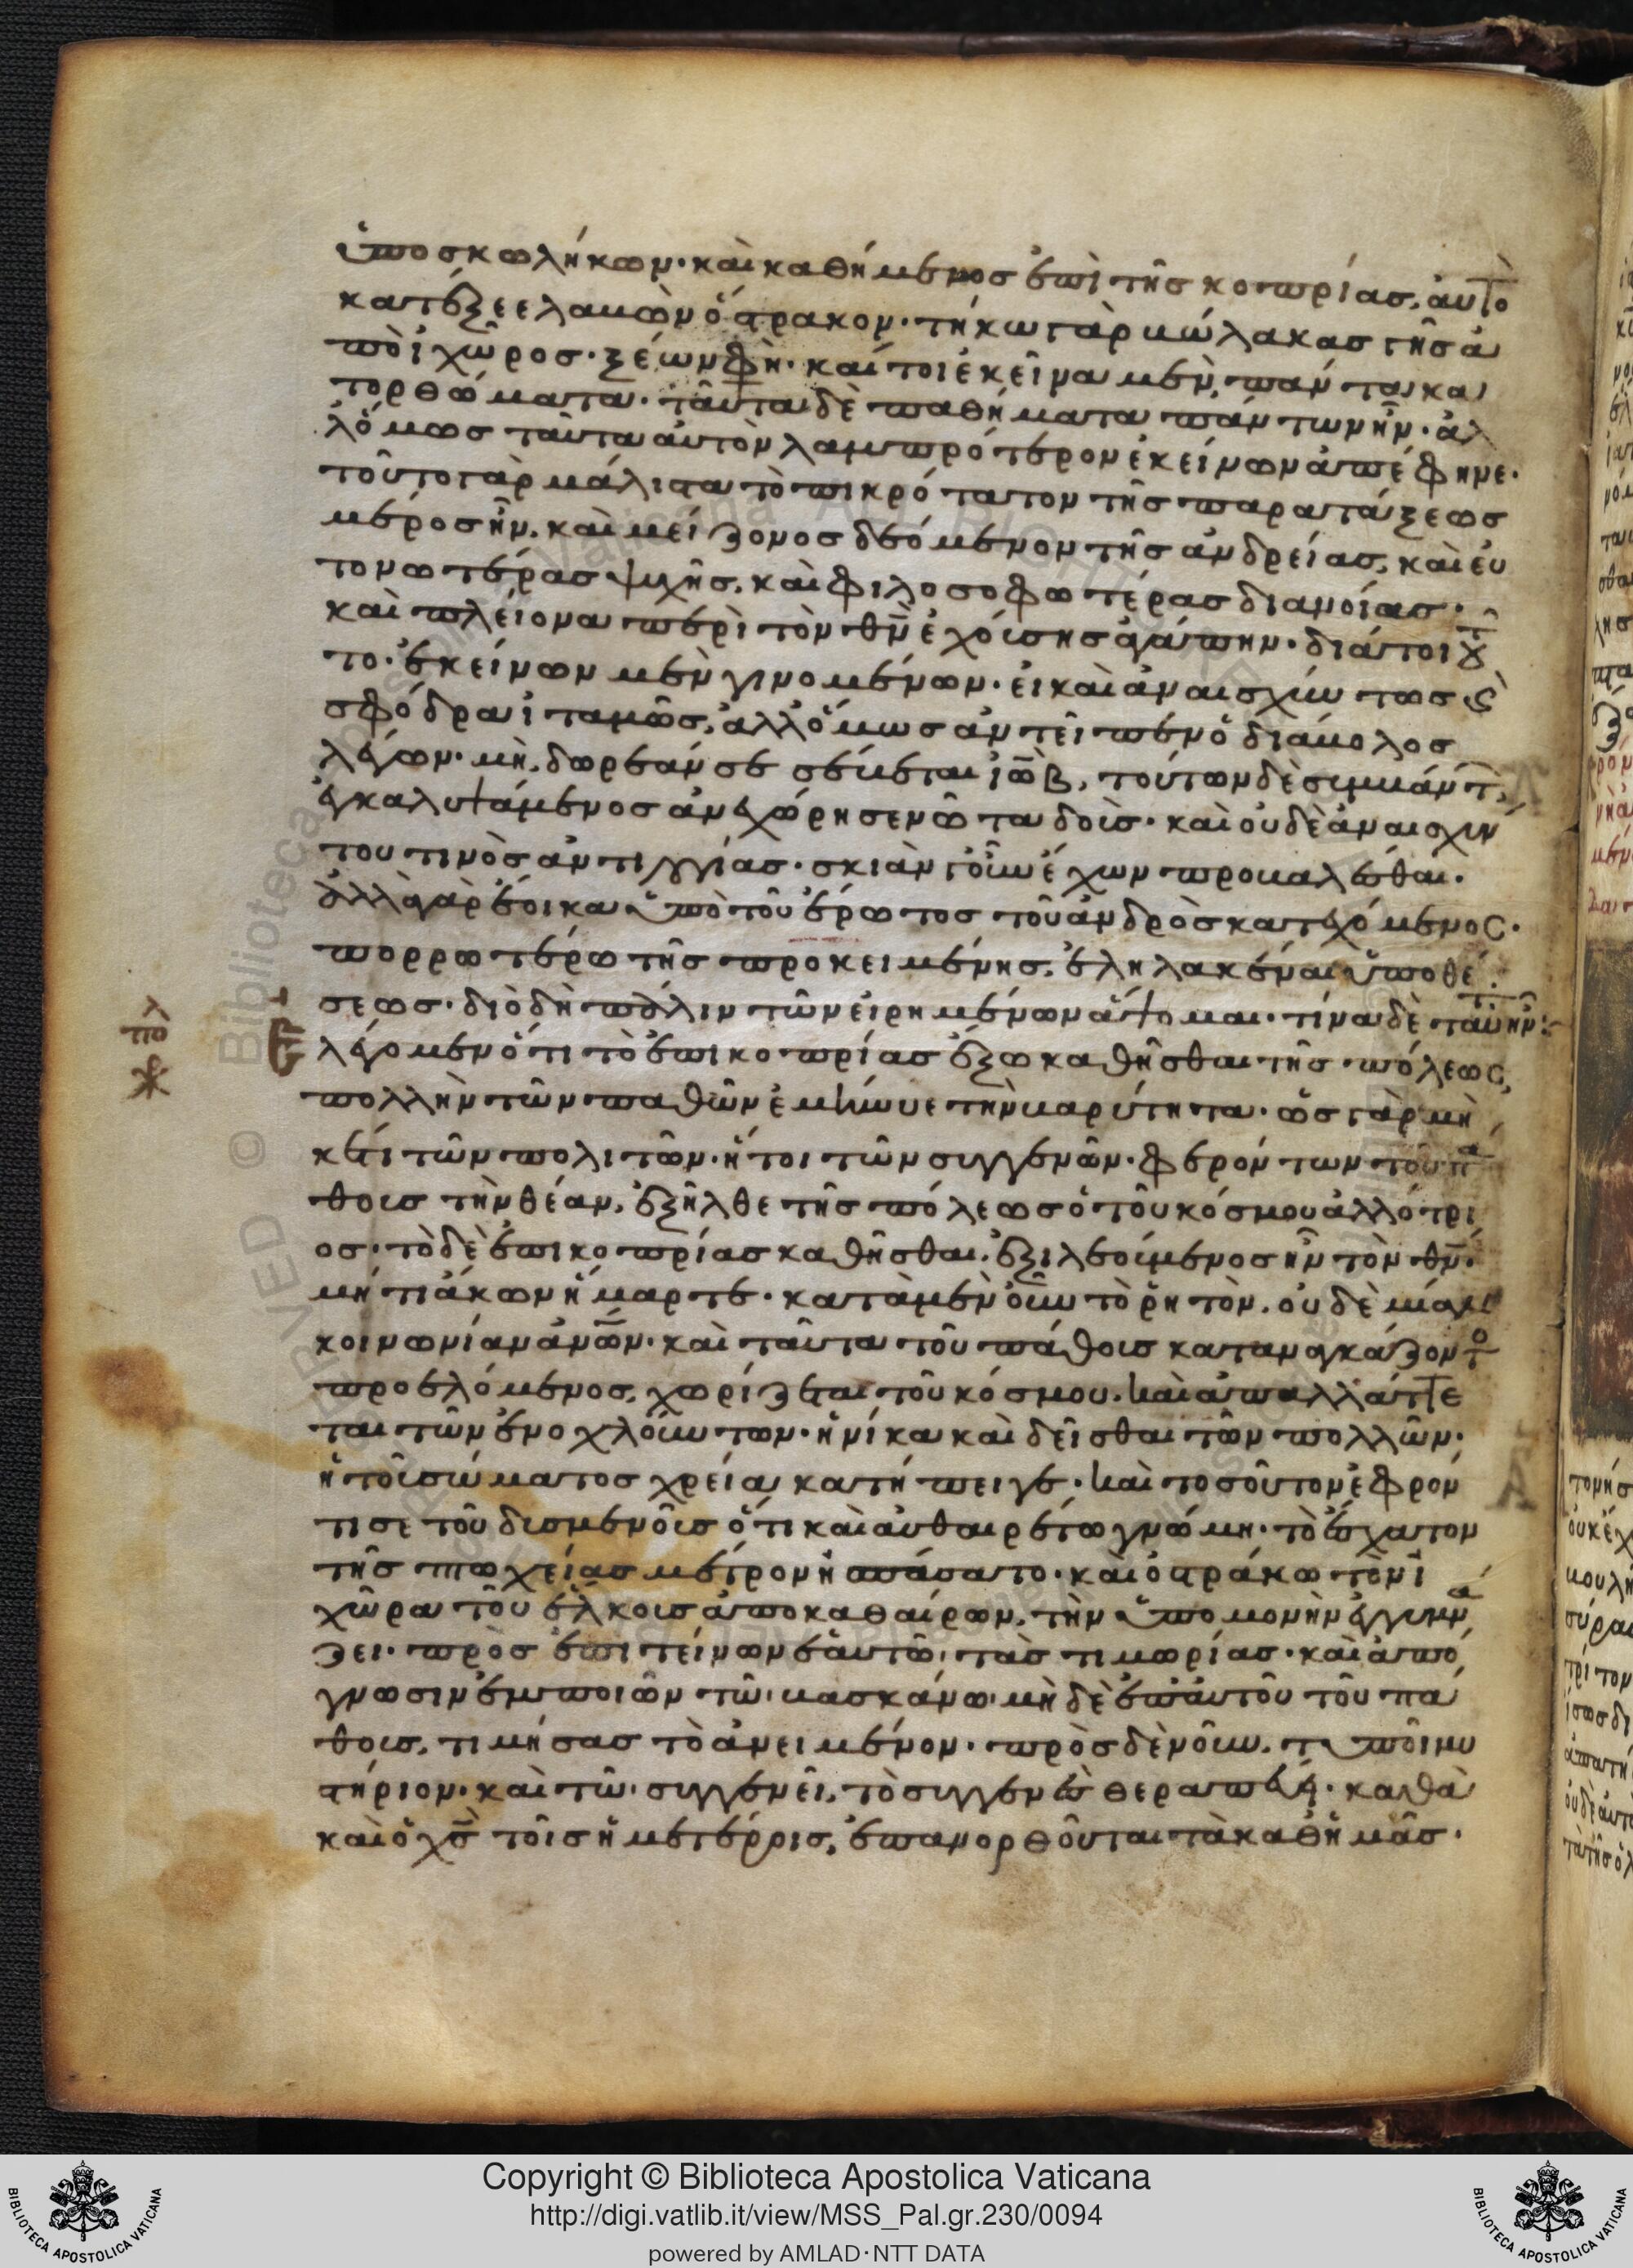 ὑπο σκωλήκων· καὶ καθήμενος ἐπὶ τῆς κοπρίας, αὐτὸ
κατέξεε λαβὼν ὄστρακον· τήκω γὰρ βώλακας γῆς ἀ
πὸ ἰχῶρος ξέων φη· καίτοι ἐκεῖνα μὲν πάντα κα
τορθώματα· ταῦτα δὲ παθήματα πάντων ἦν· ἀλ
λ' ὅμως ταῦτα αὐτὸν λαμπρότερον ἐκείνων ἀπέφηνε·
τοῦτο γὰρ μάλιστα τὸ πικρότατον τῆς παρατάξεως
μέρος ἦν, καὶ μείζονος δεόμενον τῆς ἀνδρείας, καὶ εὐ
τονωτέρας ψυχῆς, καὶ φιλοσοφωτέρας διανοίας·
καὶ πλείονα περὶ τὸν θν ἐχούσης ἀγάπην· διάτοι τοῦ
το· ἐκείνων μὲν γινομένων· εἰ καὶ ἀναισχύντως ϗ
σφόδρα ἰταμῶς, ἀλλ' ὅμως ἀντεῖπεν ὁ διάβολος
λέγων· μὴ δωρεὰν σε σέβεται ἰὼβ, τούτων δὲ συμβάντ
ἐγκαλυψάμενος ἀνεχώρησε νῶτα δοὺς· καὶ οὐδὲ ἀναισχύν
του τινὸς ἀντιλογίας· σκιὰν γοῦν ἔχων προβαλέσθαι·
ἀλλὰ γὰρ ἔοικα ὑπὸ τοῦ ἔρωτος τοῦ ἀνδρὸς κατεχόμενος·
πορρωτέρω τῆς προκειμένης, ἐληλακέναι ὑποθέ
σεως· διὸ δὴ πάλιν τῶν εἰρημένων ἅψομαι· τίνα δὲ ταῦτ ἦν·
λέγομεν ὅτι τὸ ἐπὶ κοπρίας ἔξω καθῆσθαι τῆς πόλεως,
πολλὴν τῶν παθῶν ἐμήνυε τὴν βαρύτητα· ὡς γὰρ μὴ
κέτι τῶν πολιτῶν· ἤτοι τῶν συγγενῶν· φερόντων τοῦ πά
θους τὴν θέαν, ἐξῆλθε τῆς πόλεως ὁ τοῦ κόσμου ἀλλότρι
ος· τὸ δὲ ἐπὶ κοπρίας καθῆσθαι, ἐξιλεούμενος ἦν τὸν θν·
μή τι ἄκων ἥμαρτε· κατὰ μὲν οὖν τὸ ῥητὸν, οὐδὲ μίαν
κοινωνίαν ἀνων· καὶ ταῦτα τοῦ πάθους καταναγκάζοντο
προελόμενος, χωρίζεται τοῦ κόσμου, καὶ ἀπαλλάττε
ται τῶν ἐνοχλούντων· ἡνίκα καὶ δεῖσθαι τῶν πολλῶν·
ἡ τοῦ σώματος χρεία κατήπειγε· καὶ τοσοῦτον ἐφρόν
τισε τοῦ δυσμενοῦς ὅτι καὶ αὐθαιρέτω γνώμη· τὸ ἔσχατον
τῆς πτωχείας μέτρον ἠσπάσατο· καὶ ὀστράκω τὸν ἰ
χῶρα τοῦ ἕλκους ἀποκαθαίρων, τὴν ὑπομονὴν ἐγύμνα
ζει· πρὸς ἐπιτείνων ἑαυτῶ, τὰς τιμωρίας· καὶ ἀπό
γνωσιν ἐμποιῶν τῶ βασκάνω· μὴ δὲ ἐπ' αὐτοῦ τοῦ πά
θους, τιμήσας τὸ ἀνειμένον· πρὸς δὲ νοῦν,
τήριον· καὶ τῶ συγγενεῖ, τὸ συγγενὲς θεραπεύει· καθὰ
καὶ ὁ χς τοῖς ἡμετέροις, ἐπανορθοῦται τὰ καθ' ἡμᾶς·
Copyright © Biblioteca Apostolica Vaticana
http://digi.vatlib.it/view/MSS_Pal.gr.230/0094
powered by AMLAD·NTT DATA
BIBLIOTECA APOSTOLICA VATICANA
BIBLIOTECA APOSTOLICA VATICANA